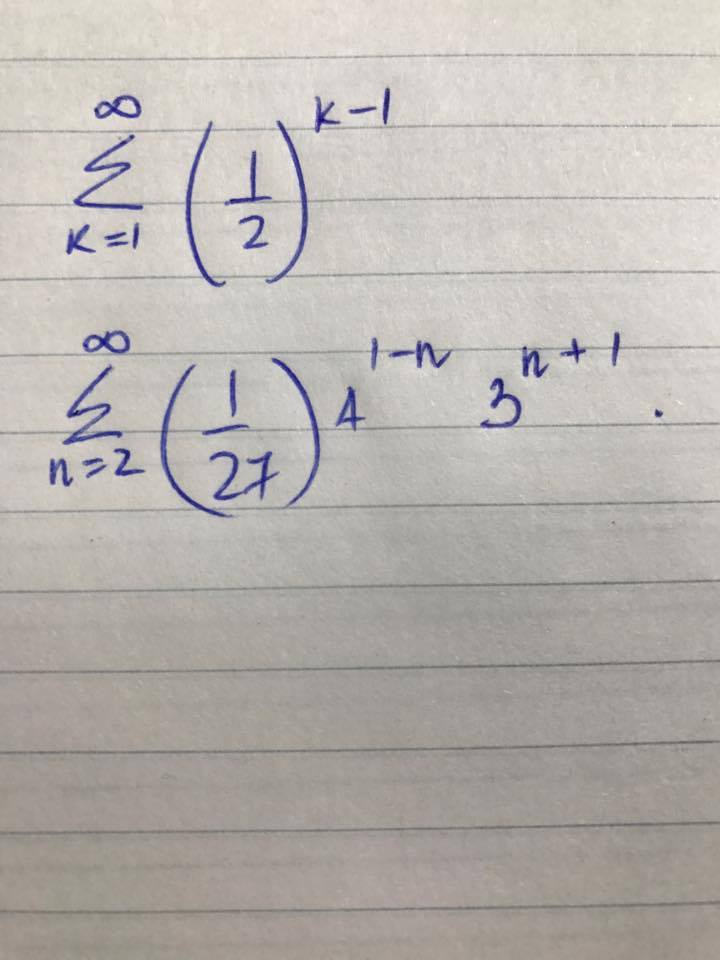 ∞ ∑ k=1 (1/2)^{k-1}
∞ ∑ n=2 (1/27) 4^{1-n} 3^{n+1} .